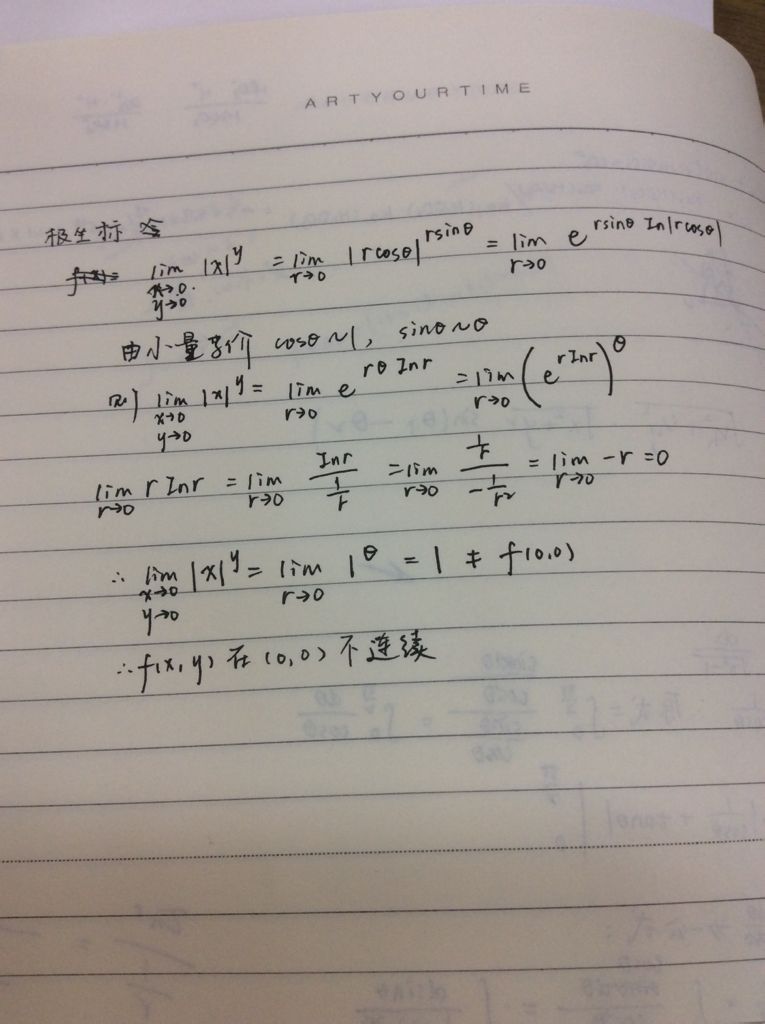 ARTYOURTIME
极坐标
lim x→0 y→0 |x|^y = lim r→0 |rcosθ|^rsinθ = lim r→0 e^rsinθ In|rcosθ|
由小量等价 cosθ~1, sinθ~θ
则 lim x→0 y→0 |x|^y = lim r→0 e^rθ Inr = lim r→0 (e^rInr)^θ
lim r→0 r Inr = lim r→0 Inr / (1/r) = lim r→0 (1/r) / (-1/r²) = lim r→0 -r = 0
∴ lim x→0 y→0 |x|^y = lim r→0 1^θ = 1 ≠ f(0,0)
∴ f(x,y) 在 (0,0) 不连续